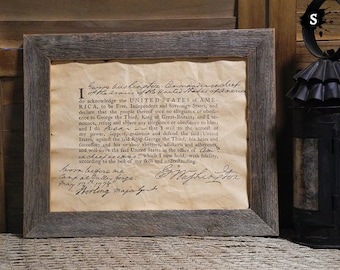 S
I George Washington Commander in chief
of the Armies of the United States of America
do acknowledge the UNITED STATES of AME-
RICA, to be Free, Independent and Sovereign States, and
declare that the people thereof owe no allegiance or obedi-
ence to George the Third, King of Great-Britain; and I re-
nounce, refuse and abjure any allegiance or obedience to him;
and I do swear that I will to the utmost of
my power, support, maintain and defend the said United
States, against the said King George the Third, his heirs and
successors and his or their abettors, assistants and adherents,
and will serve the said United States in the office of
which I now hold, with fidelity,
according to the best of my skill and understanding.
Sworn before me
Camp at Valley Forge
May 12th 1778
Stirling Major
G Washington